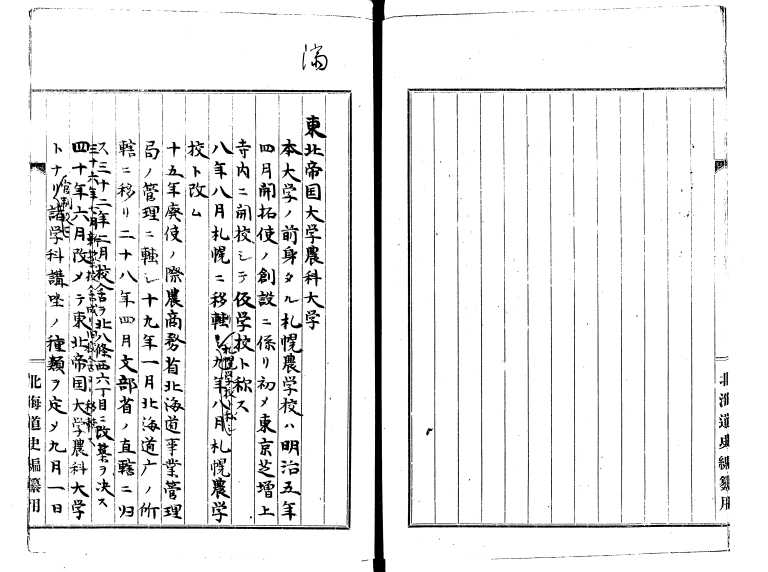 済
東北帝国大学農科大学
本大学ノ前身タル札幌農学校ハ明治五年
四月開拓使ノ創設ニ係リ初メ東京芝増上
寺内ニ開校シテ仮学校ト称ス
八年八月札幌ニ移転
札幌学校ト称シ
九年八月札幌農学
校ト改ム
十五年廃使ノ際農商務省北海道事業管理
局ノ管理ニ転シ十九年一月北海道庁ノ所
轄ニ移リ二十八年四月文部省ノ直轄ニ归
ス三十二年二月校舎ヲ北八條西六丁目ニ改築ヲ決ス
三十六年 月新築校舎成リ旧校舎ヨリ移転ス
四十年六月改メテ東北帝国大学農科大学
トナリ
官制
諸学科講座ノ種類ヲ定メ九月一日
北海道史編纂用
北海道史編纂用